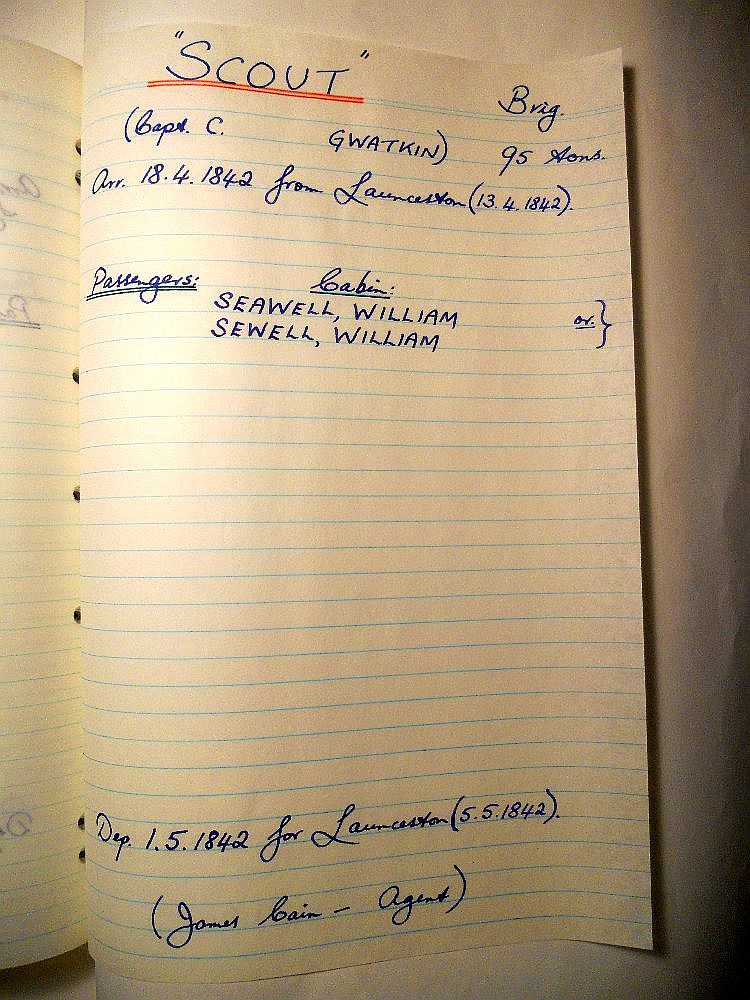 "SCOUT"
Brig.
(Capt. C. GWATKIN) 95 tons.
Arr. 18.4.1842 from Launceston (13.4.1842).
Passengers: Cabin:
SEAWELL, WILLIAM or. }
SEWELL, WILLIAM
Dep. 1.5.1842 for Launceston (5.5.1842).
(James Cain - Agent)